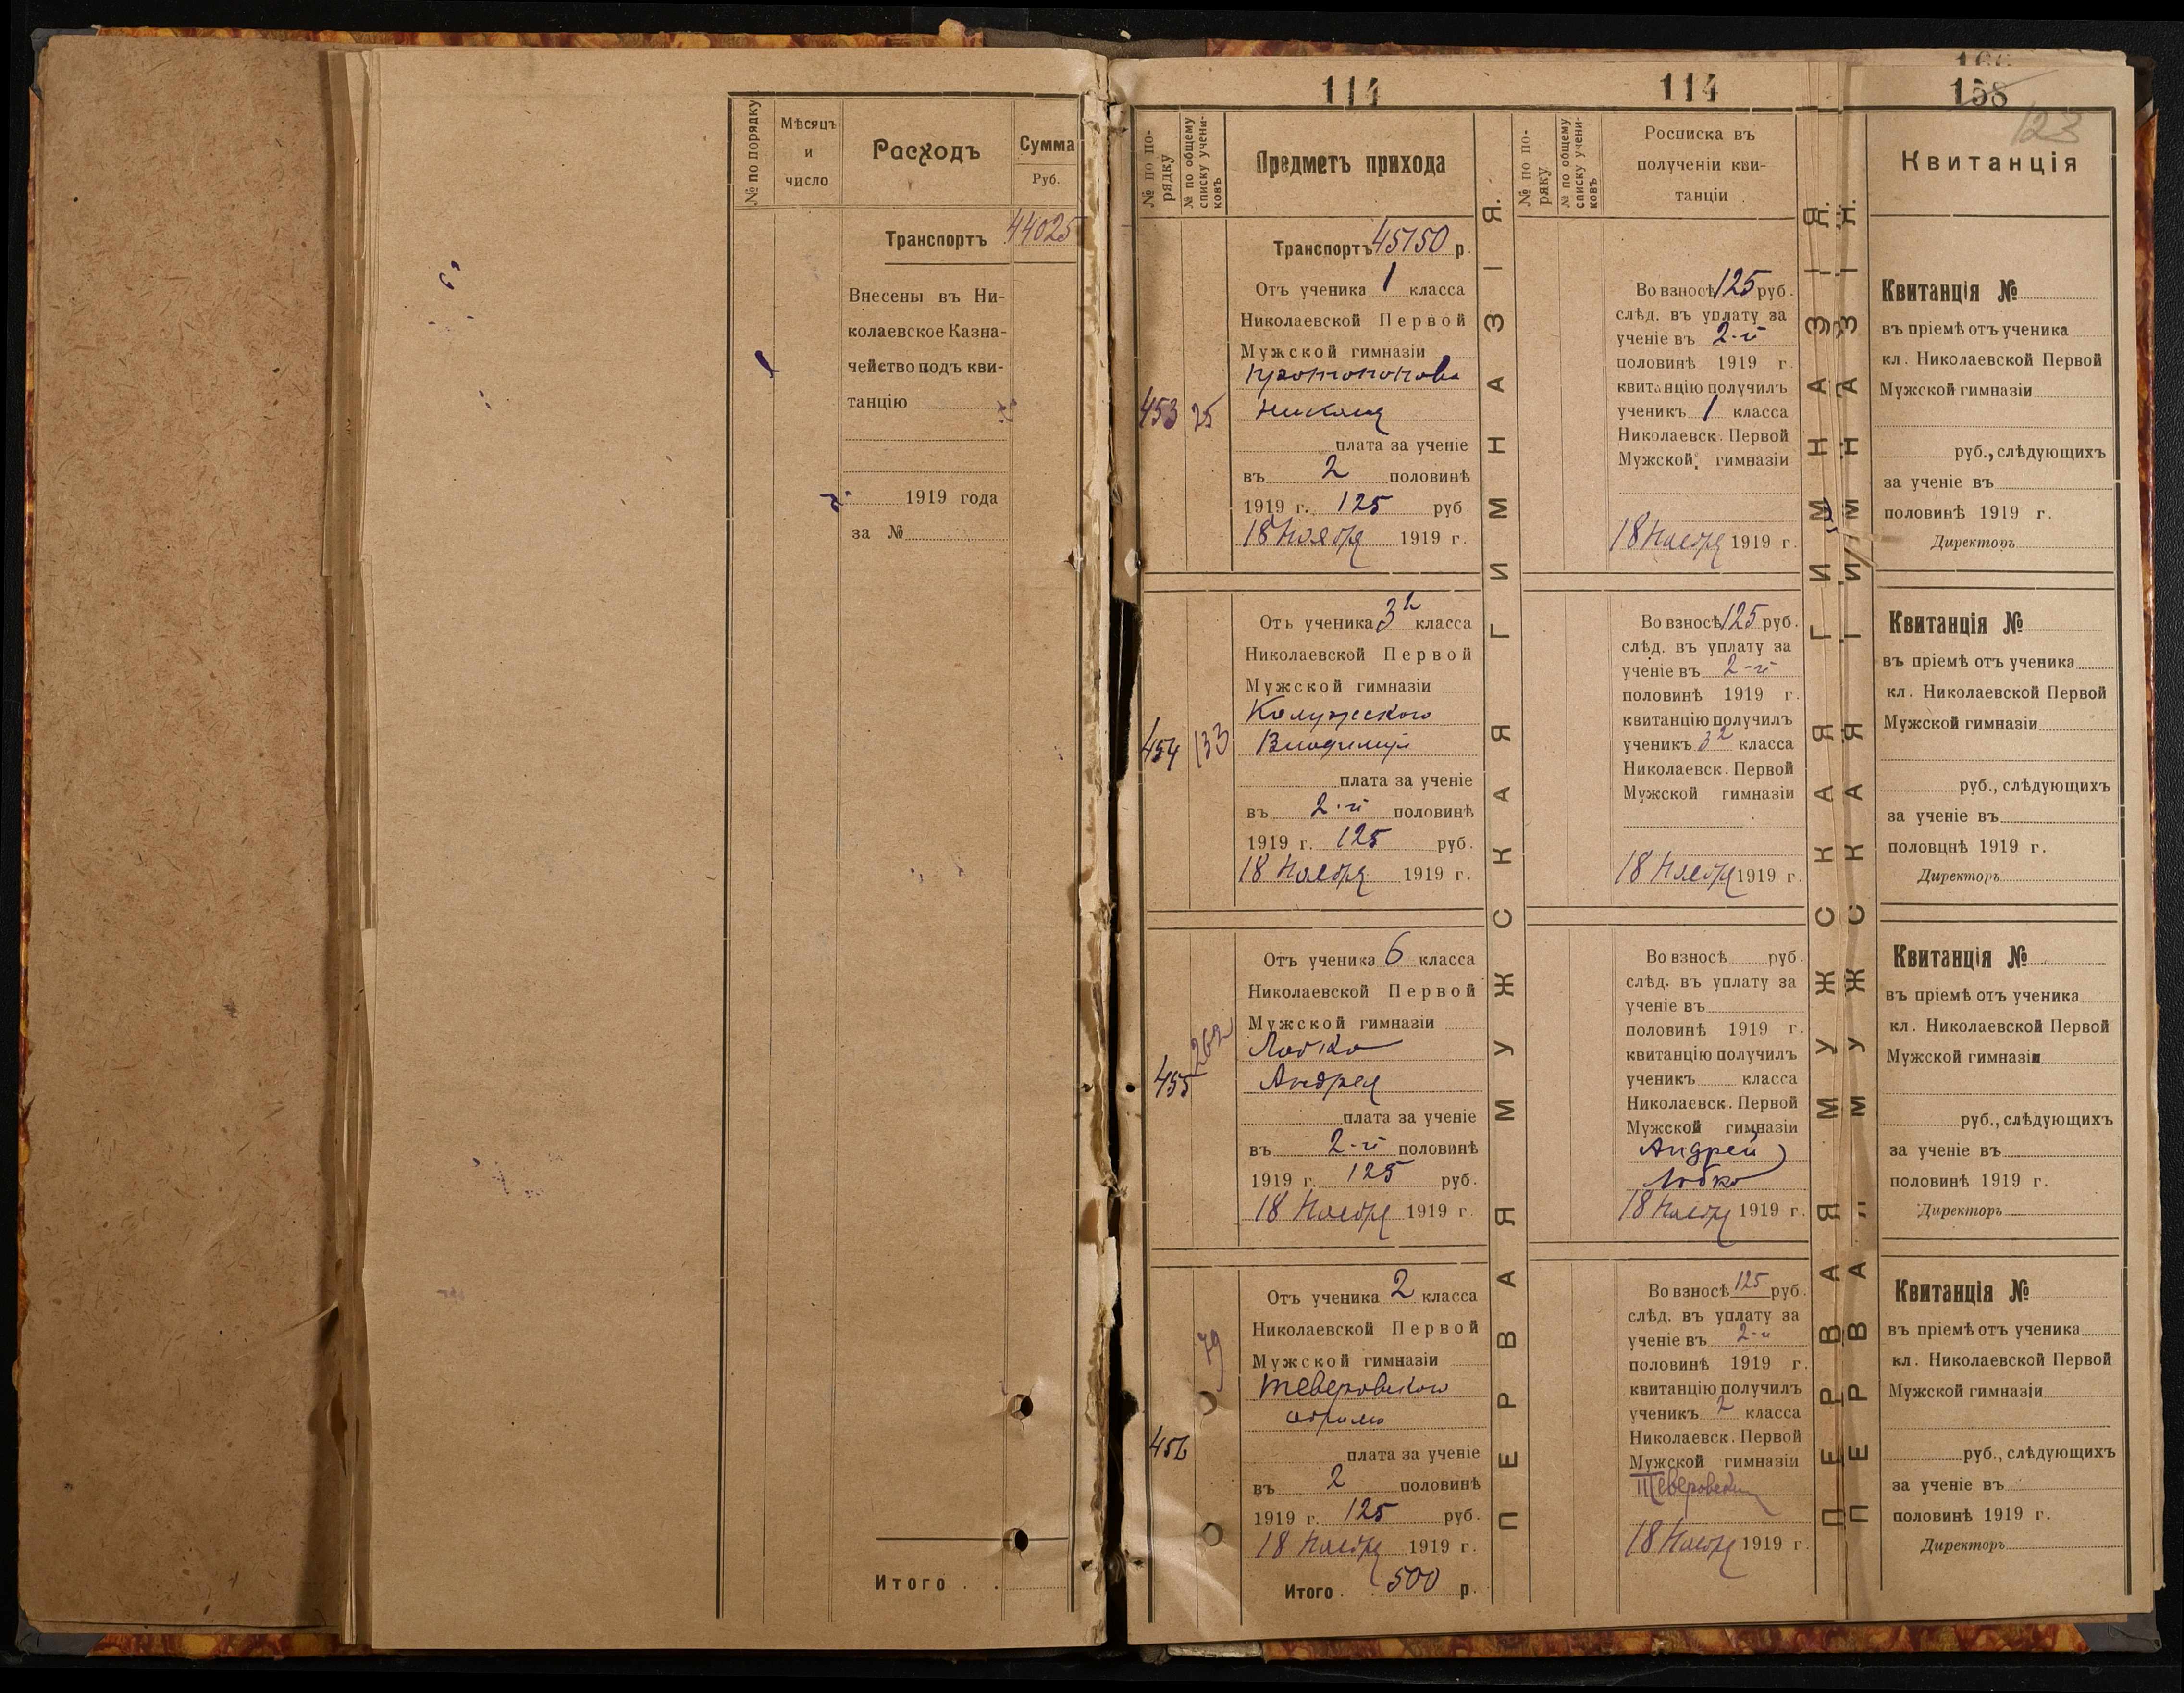 № по порядку
Мѣсяцъ
и
число
Расходъ
Сумма
Руб.
Транспортъ 44025
Внесены въ Ни-
колаевское Казна-
чейство подъ кви-
танцію
1919 года
за №
Итого . .
114
№ по по-
рядку
№ по общему
списку учени-
ковъ
Предметъ прихода
Транспортъ 45150 р.
453
25
Отъ ученика 1 класса
Николаевской Первой
Мужской гимназіи
Протопопова
Николая
плата за ученіе
въ 2 половинѣ
1919 г. 125 руб
18 Ноября 1919 г.
454
133
Отъ ученика 3² класса
Николаевской Первой
Мужской гимназіи
Калужского
Владимир
плата за ученіе
въ 2-й половинѣ
1919 г. 125 руб.
18 Ноября 1919 г.
455
262
Отъ ученика 6 класса
Николаевской Первой
Мужской гимназіи
Лобко
Андрея
плата за ученіе
въ 2-й половинѣ
1919 г. 125 руб.
18 Ноября 1919 г.
456
79
Отъ ученика 2 класса
Николаевской Первой
Мужской гимназіи
Теверовского
плата за ученіе
въ 2 половинѣ
1919 г. 125 руб.
18 Ноября 1919 г.
Итого . 500 р.
ПЕРВАЯ МУЖСКАЯ ГИМНАЗІЯ.
114
№ по по-
ряку
№ по общему
списку учени-
ковъ
Росписка въ
полученіи кви-
танціи
Во взносѣ 125 руб.
слѣд. въ уплату за
ученіе въ 2-й
половинѣ 1919 г.
квитанцію получилъ
ученикъ 1 класса
Николаевск. Первой
Мужской гимназіи
18 Ноября 1919 г.
Во взносѣ 125 руб.
слѣд. въ уплату за
ученіе въ 2-й
половинѣ 1919 г.
квитанцію получилъ
ученикъ 3² класса
Николаевск. Первой
Мужской гимназіи
18 Ноября 1919 г.
Во взносѣ руб.
слѣд. въ уплату за
ученіе въ
половинѣ 1919 г.
квитанцію получилъ
ученикъ класса
Николаевск. Первой
Мужской гимназіи
Андрей
Лобко
18 Ноября 1919 г.
Во взносѣ 125 руб.
слѣд. въ уплату за
ученіе въ 2-й
половинѣ 1919 г.
квитанцію получилъ
ученикъ 2 класса
Николаевск. Первой
Мужской гимназіи
Теверовский
18 Ноября 1919 г.
ПЕРВАЯ МУЖСКАЯ ГИМНАЗІЯ.
ПЕРВАЯ МУЖСКАЯ ГИМНАЗІЯ.
166
158
123
Квитанція
Квитанція №
въ пріемѣ отъ ученика
кл. Николаевской Первой
Мужской гимназіи
руб., слѣдующихъ
за ученіе въ
половинѣ 1919 г.
Директоръ
Квитанція №
въ пріемѣ отъ ученика
кл. Николаевской Первой
Мужской гимназіи
руб., слѣдующихъ
за ученіе въ
половцнѣ 1919 г.
Директоръ
Квитанція №
въ пріемѣ отъ ученика
кл. Николаевской Первой
Мужской гимназіи
руб., слѣдующихъ
за ученіе въ
половинѣ 1919 г.
Директоръ
Квитанція №
въ пріемѣ отъ ученика
кл. Николаевской Первой
Мужской гимназіи
руб., слѣдующихъ
за ученіе въ
половинѣ 1919 г.
Директоръ